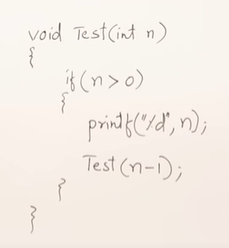 void Test(int n)
{
if(n>0)
{
printf("%d", n);
Test(n-1);
}
}